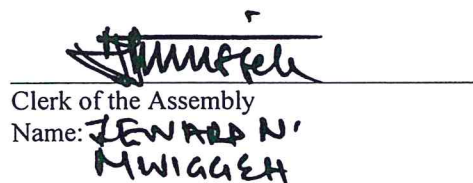 Clerk of the Assembly
Name: JEWARD N.
MWIGGEH